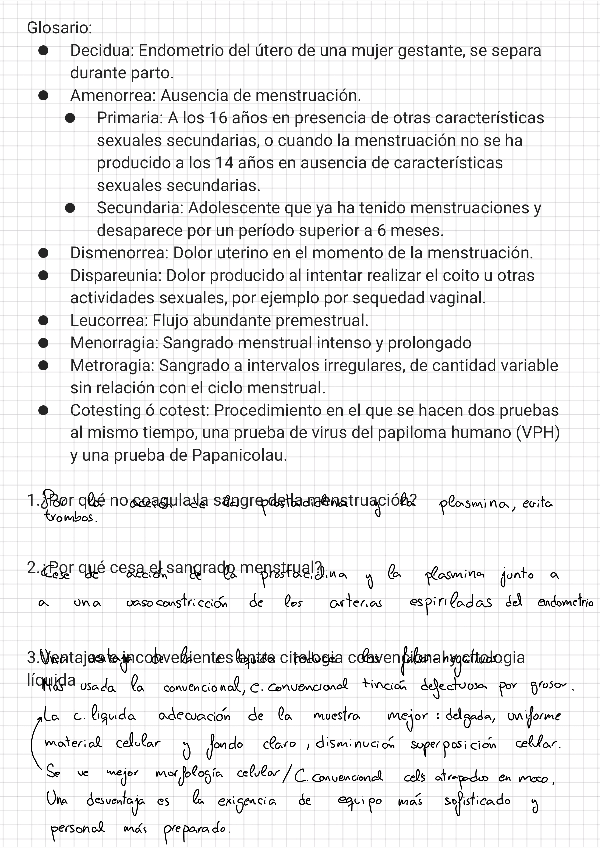 Glosario:
● Decidua: Endometrio del útero de una mujer gestante, se separa
durante parto.
● Amenorrea: Ausencia de menstruación.
● Primaria: A los 16 años en presencia de otras características
sexuales secundarias, o cuando la menstruación no se ha
producido a los 14 años en ausencia de características
sexuales secundarias.
● Secundaria: Adolescente que ya ha tenido menstruaciones y
desaparece por un período superior a 6 meses.
● Dismenorrea: Dolor uterino en el momento de la menstruación.
● Dispareunia: Dolor producido al intentar realizar el coito u otras
actividades sexuales, por ejemplo por sequedad vaginal.
● Leucorrea: Flujo abundante premestrual.
● Menorragia: Sangrado menstrual intenso y prolongado
● Metroragia: Sangrado a intervalos irregulares, de cantidad variable
sin relación con el ciclo menstrual.
● Cotesting ó cotest: Procedimiento en el que se hacen dos pruebas
al mismo tiempo, una prueba de virus del papiloma humano (VPH)
y una prueba de Papanicolau.
1.¿Por qué no coagula la sangre de la menstruación?
Por la acción de la prostacidina plasmina, evita
trombos.
2.¿Por qué cesa el sangrado menstrual?
Cese de acción de la prostacidina y la plasmina junto a
a una vasoconstricción de las arterias espiriladas del endometrio
3.Ventajas e inconvenientes entre citología convencional y citología
líquida
Más usada la convencional, C. convencional tinción defectuosa por grosor.
La c. líquida adecuación de la muestra mejor: delgada, uniforme
material celular y fondo claro, disminución superposición celular.
Se ve mejor morfología celular / C. convencional cels atrapadas en moco.
Una desventaja es la exigencia de equipo más sofisticado y
personal más preparado.